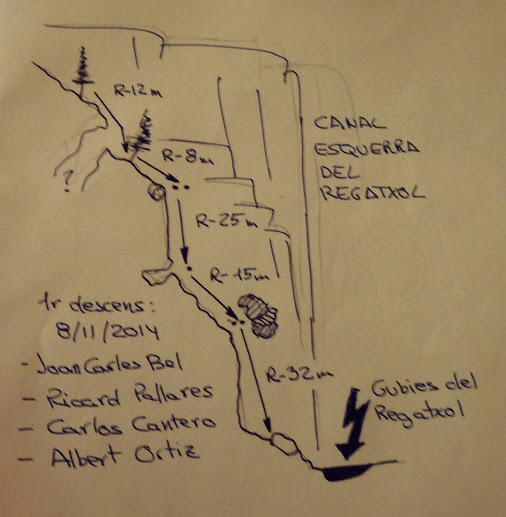 R-12m
R-8m
CANAL
ESQUERRA
DEL
REGATXOL
?
R-25m
R-15m
1r descens:
8/11/2014
- Joan Carles Bel
- Ricard Pallares
- Carlos Cantero
- Albert Ortiz
R-32m
Gubies del
Regatxol